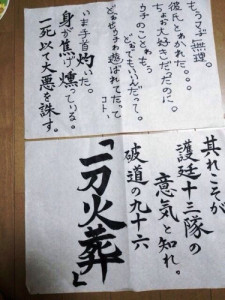 もぅマヂ無理。
彼氏とゎかれた。。。
ちょぉ大好きだったのに。
ウチのことゎもぅ
どぉでもいぃんだって。
どぉせウチゎ遊ばれてたって
コト、
いま手首灼いた。
身が焦げ燻っている。
一死以て大悪を誅す。
其れこそが
護廷十三隊の
意気と知れ。
破道の九十六
「一刀火葬」